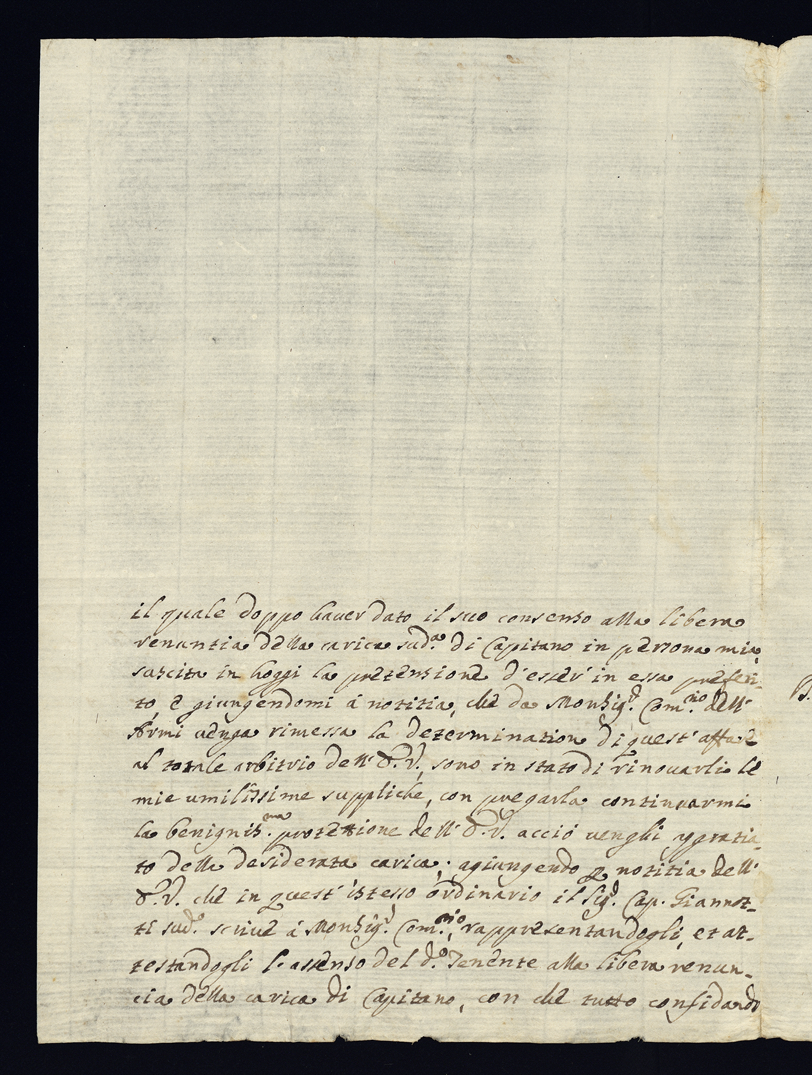 il quale doppo haver dato il suo consenso alla libera
renuntia della carica sud.ª di Capitano in persona mia,
suscita in hoggi la pretensione d'esser in essa preferi-
to, e giungendomi à notitia, che da Monsig.r Com.rio dell'
Armi venga rimessa la determination di quest'affare
al totale arbitrio dell' E.V., sono in stato di rinovarli le
mie umilissime suppliche, con pregarla continuarmi
la benignis.ma protettione dell' E.V. acciò venghi aggratia-
to della desiderata carica; agiungendo p notitia dell'
E.V. che in quest' istesso ordinario il Sig.r Cap. Giannot-
ti sud.o scrive à Monsig.r Com.rio, rappresentandogli, et at-
testandogli l'assenso del d.o Tenente alla libera renun-
cia della carica di Capitano, con che tutto confidando